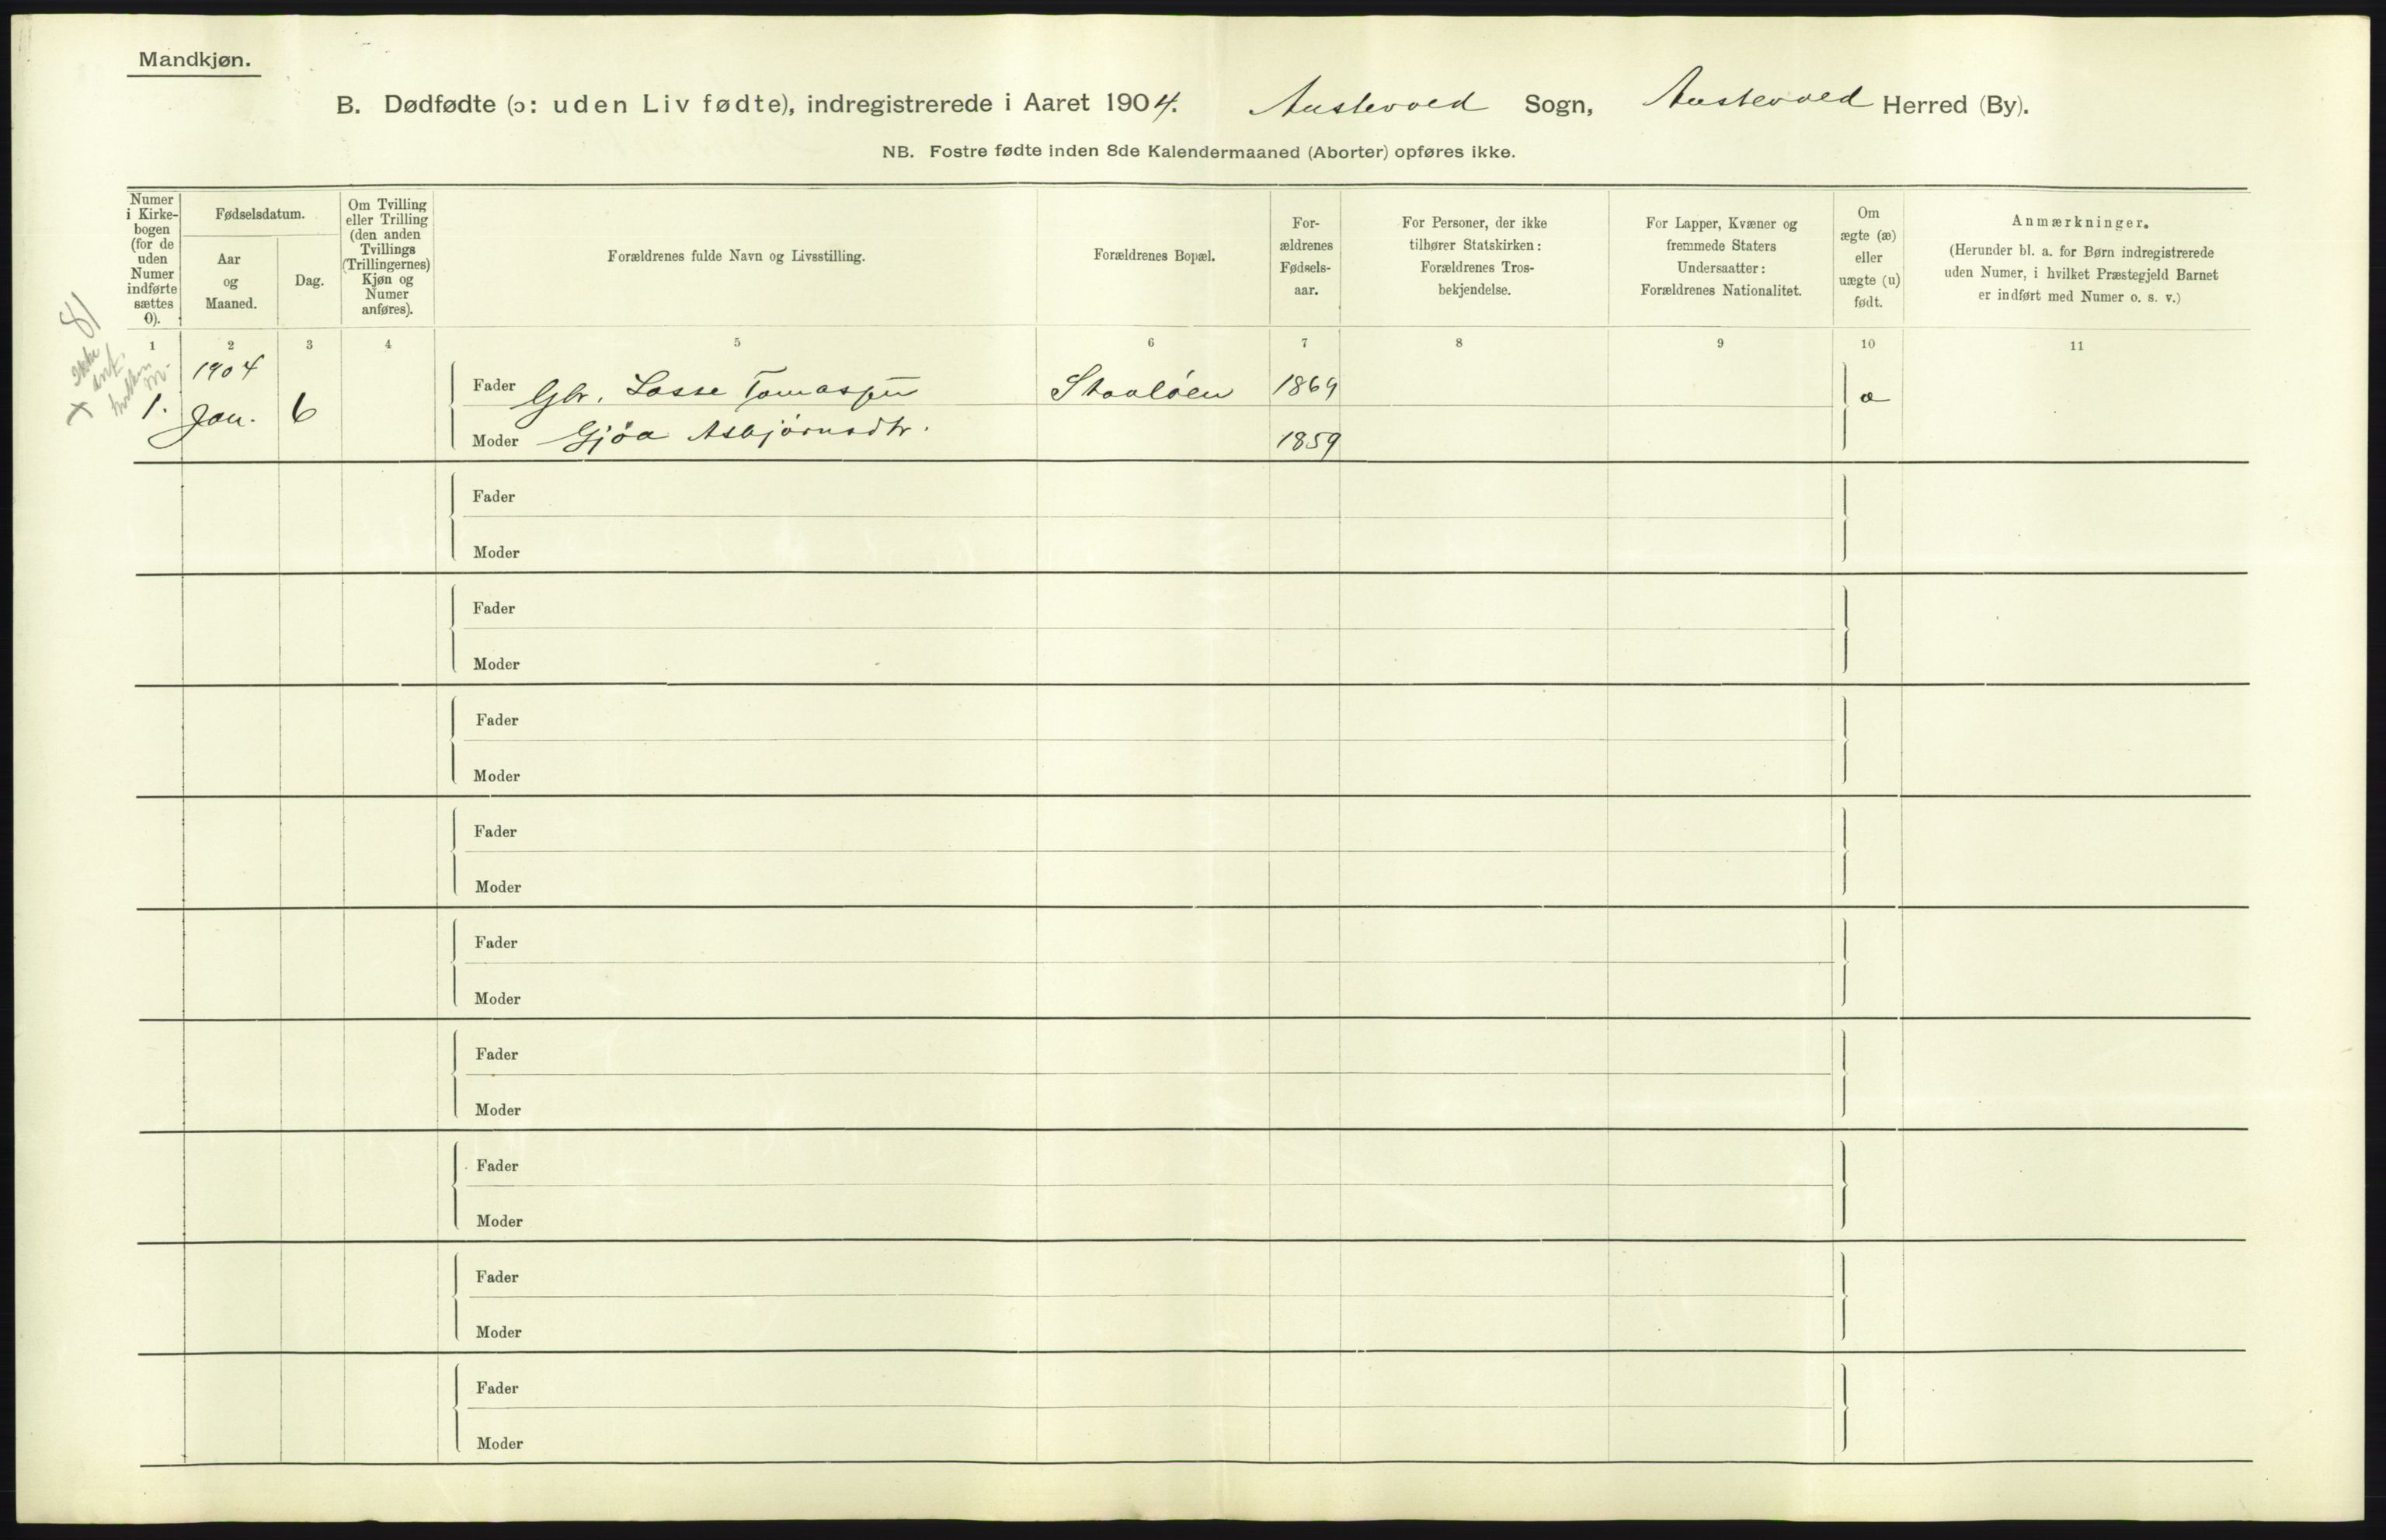 Mandkjøn.
B. Dødfødte (ɔ: uden Liv fødte), indregistrerede i Aaret 1904. Austevold Sogn, Austevold Herred (By).
NB. Fostre fødte inden 8de Kalendermaaned (Aborter) opføres ikke.
Numer
i Kirke-
bogen
(for de
uden
Numer
indførte
sættes
0).
Fødselsdatum.
Aar
og
Maaned.
Dag.
Om Tvilling
eller Trilling
(den anden
Tvillings
(Trillingernes)
Kjøn og
Numer
anføres).
Forældrenes fulde Navn og Livsstilling.
Forældrenes Bopæl.
For-
ældrenes
Fødsels-
aar.
For Personer, der ikke
tilhører Statskirken:
Forældrenes Tros-
bekjendelse.
For Lapper, Kvæner og
fremmede Staters
Undersaatter:
Forældrenes Nationalitet.
Om
ægte (æ)
eller
uægte (u)
født.
Anmærkninger.
(Herunder bl. a. for Børn indregistrerede
uden Numer, i hvilket Præstegjeld Barnet
er indført med Numer o. s. v.)
1 2 3 4 5 6 7 8 9 10 11
81
ikke
ant.
x
1904
1. Jan. 6
Fader Gbr. Lasse Tomassen
1869
æ
Moder Gjøa Asbjørnsdtr.
1859
Fader
Moder
Fader
Moder
Fader
Moder
Fader
Moder
Fader
Moder
Fader
Moder
Fader
Moder
Fader
Moder
Fader
Moder